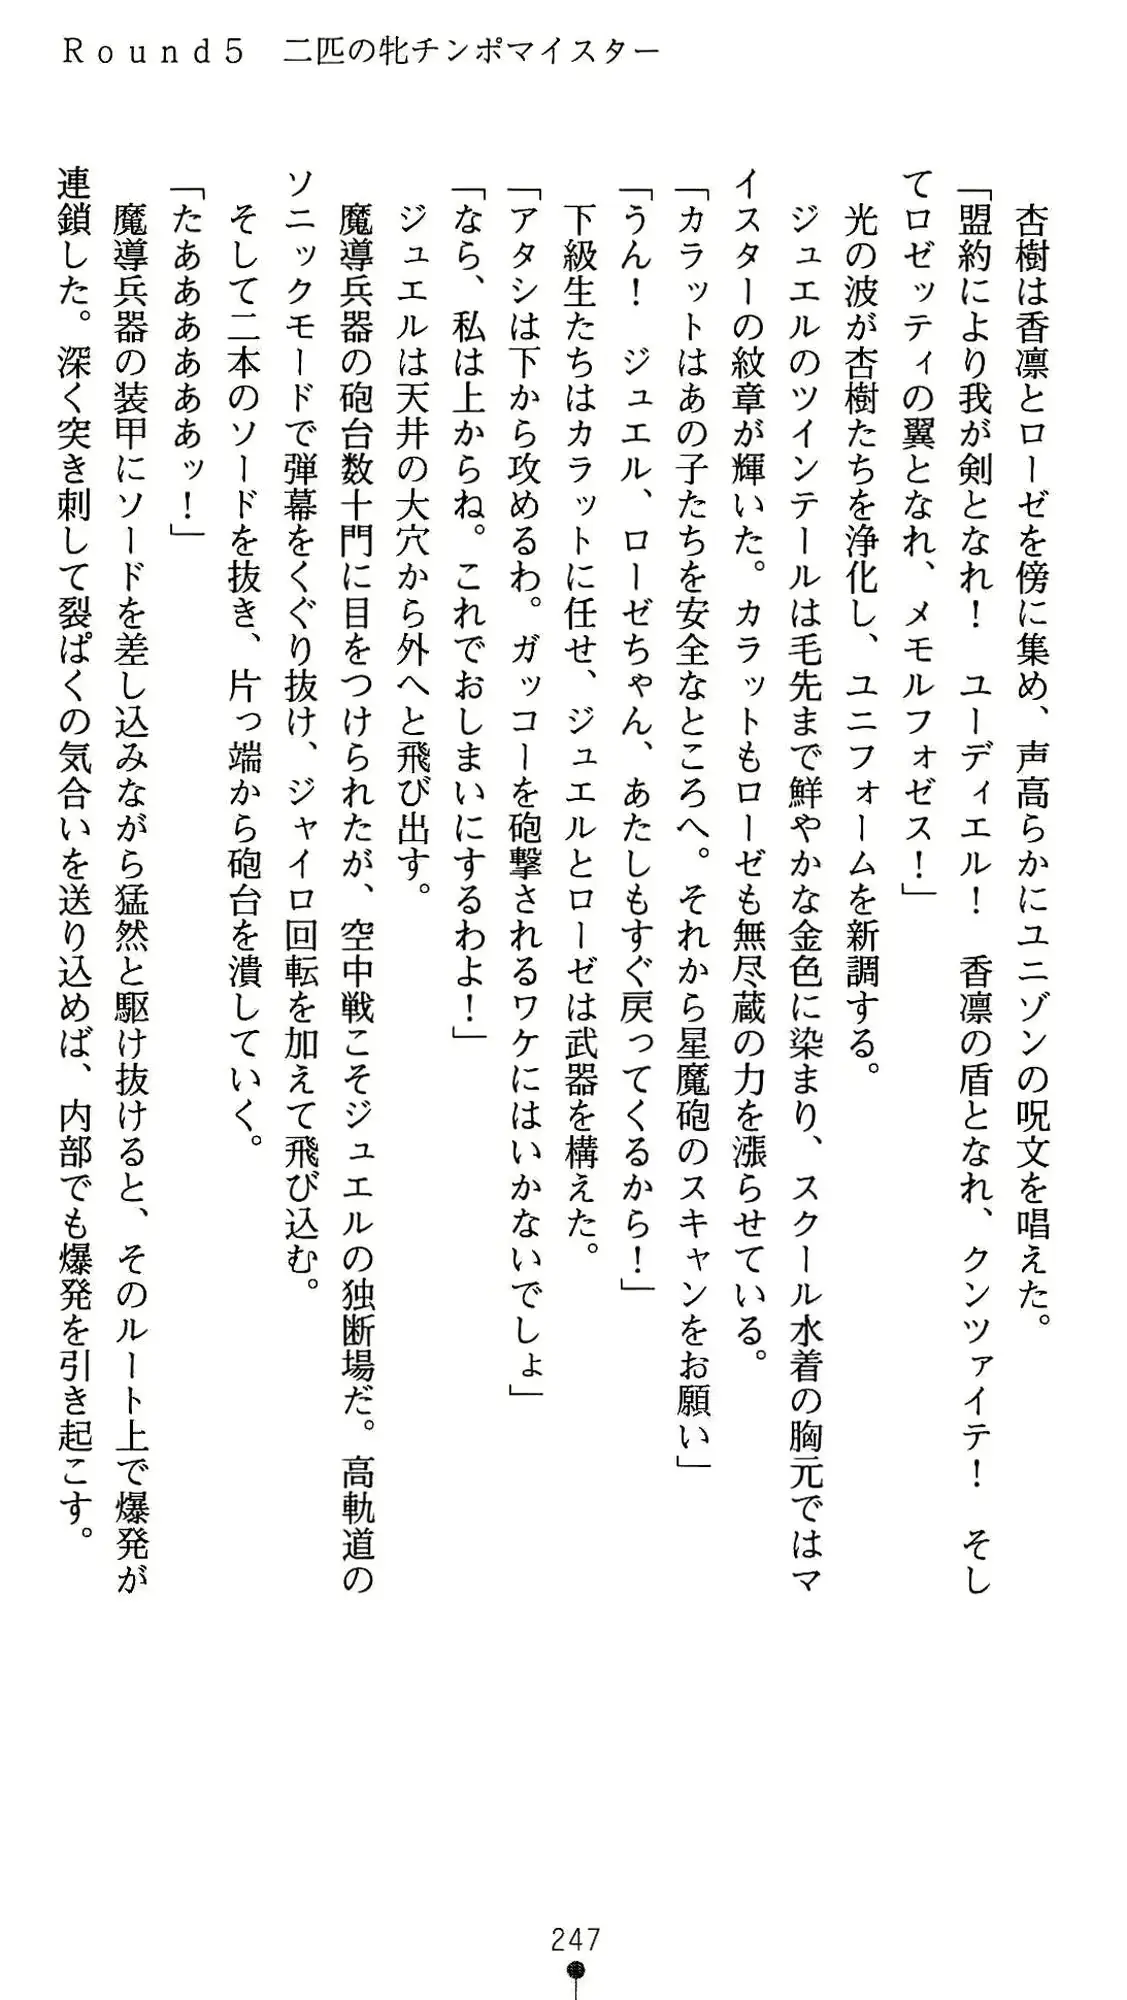 Ｒｏｕｎｄ５　二匹の牝チンポマイスター
　杏樹は香凛とローゼを傍に集め、声高らかにユニゾンの呪文を唱えた。
「盟約により我が剣となれ！　ユーディエル！　香凛の盾となれ、クンツァイテ！　そし
てロゼッティの翼となれ、メモルフォゼス！」
　光の波が杏樹たちを浄化し、ユニフォームを新調する。
　ジュエルのツインテールは毛先まで鮮やかな金色に染まり、スクール水着の胸元ではマ
イスターの紋章が輝いた。カラットもローゼも無尽蔵の力を漲らせている。
「カラットはあの子たちを安全なところへ。それから星魔砲のスキャンをお願い」
「うん！　ジュエル、ローゼちゃん、あたしもすぐ戻ってくるから！」
　下級生たちはカラットに任せ、ジュエルとローゼは武器を構えた。
「アタシは下から攻めるわ。ガッコーを砲撃されるワケにはいかないでしょ」
「なら、私は上からね。これでおしまいにするわよ！」
　ジュエルは天井の大穴から外へと飛び出す。
　魔導兵器の砲台数十門に目をつけられたが、空中戦こそジュエルの独断場だ。高軌道の
ソニックモードで弾幕をくぐり抜け、ジャイロ回転を加えて飛び込む。
　そして二本のソードを抜き、片っ端から砲台を潰していく。
「たああああああッ！」
　魔導兵器の装甲にソードを差し込みながら猛然と駆け抜けると、そのルート上で爆発が
連鎖した。深く突き刺して裂ぱくの気合いを送り込めば、内部でも爆発を引き起こす。
247